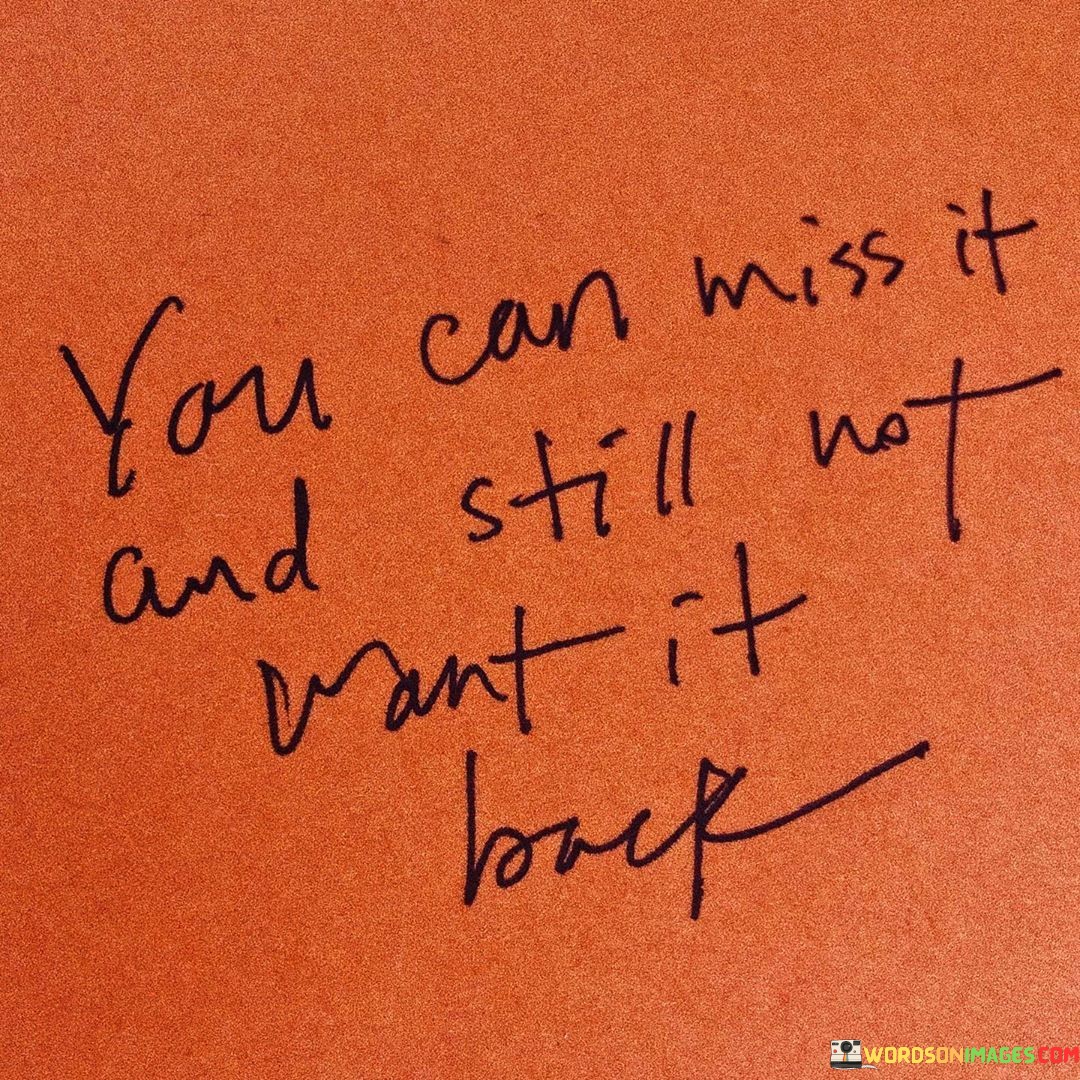 You can miss it
and still not
want it
back
WORDSONIMAGES.COM